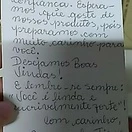 confiança. Espera-
mos que goste de
nossos produtos, pois
preparamos com
muito carinho para
você.
Desejamos Boas
Vindas!
E lembre-se sempre:
"Você é linda e
incrivelmente forte"!
Com carinho,